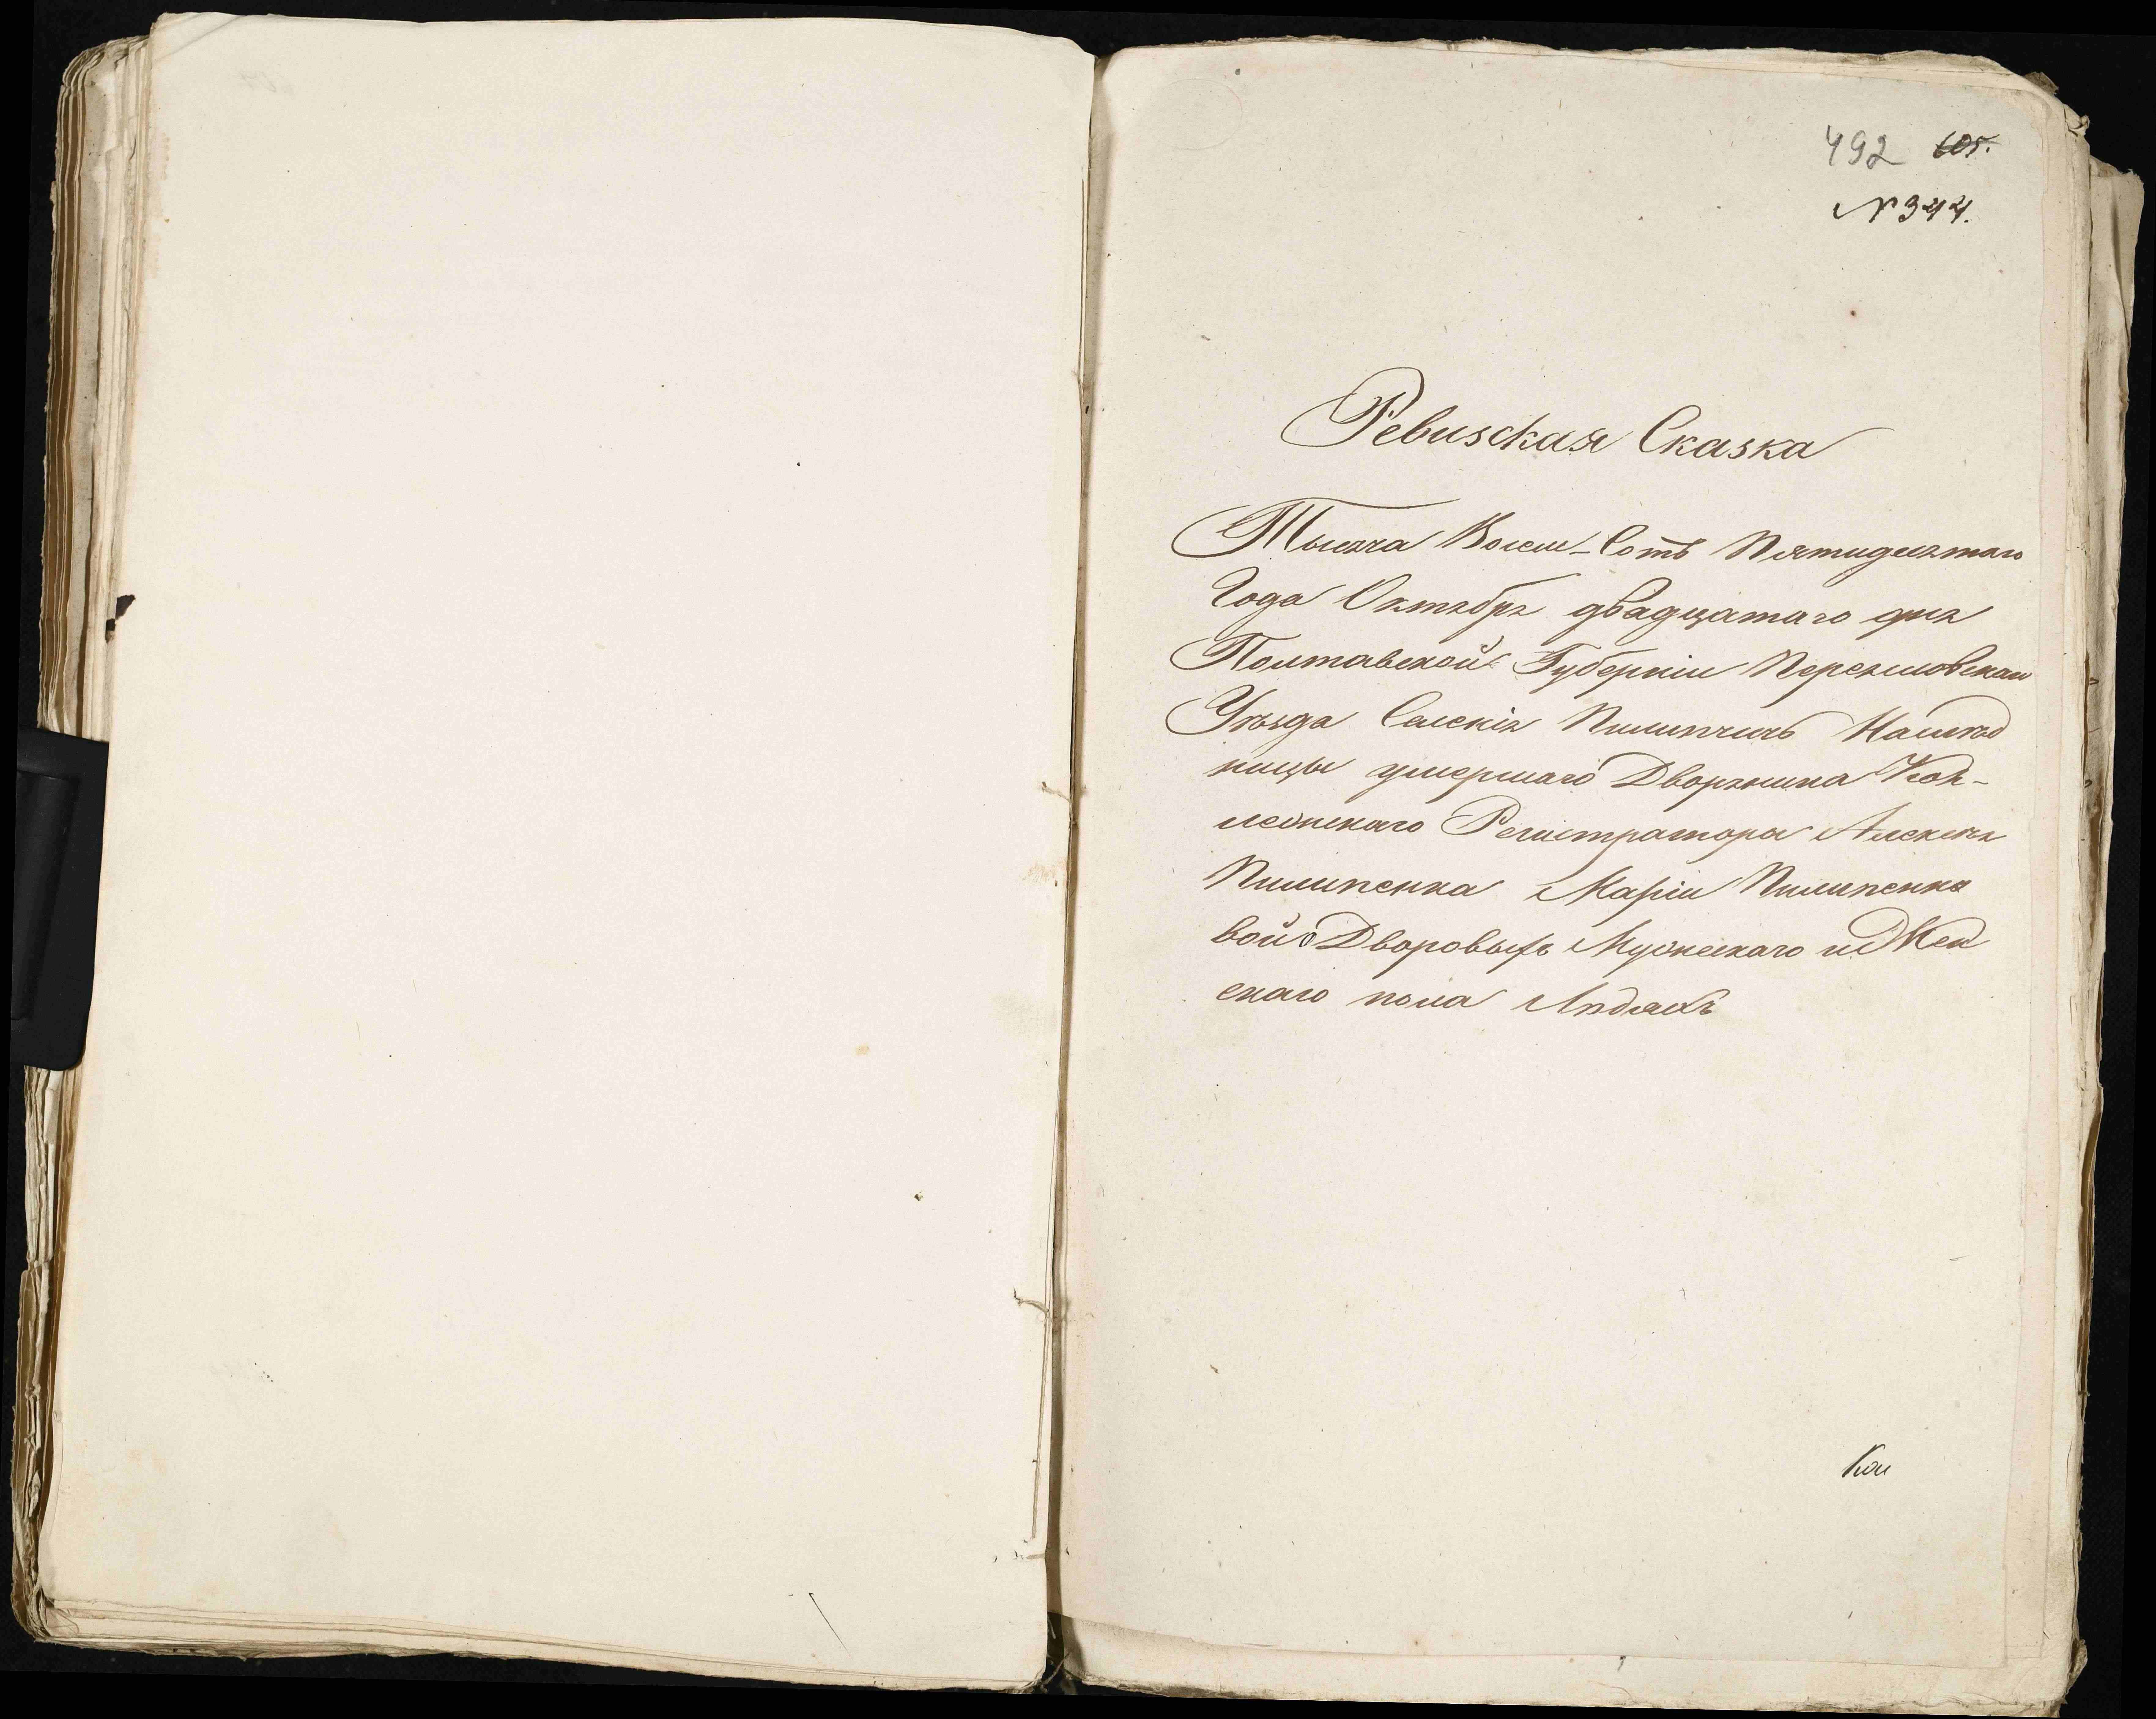 492 605.
№ 344.
Ревизская Сказка
Тысяча Восем-Сотъ Пятидесятаго
Года Октября двадцатаго дня
Полтавской Губерніи Переяславскаго
Уѣзда Селенія Пилипчичъ Наслѣд
ницы умершаго Дворянина Кол-
лежскаго Регистратора Алексея
Пилипенка Маріи Пилипенко
вой о Дворовыхъ Мужескаго и Жен
скаго пола Людяхъ